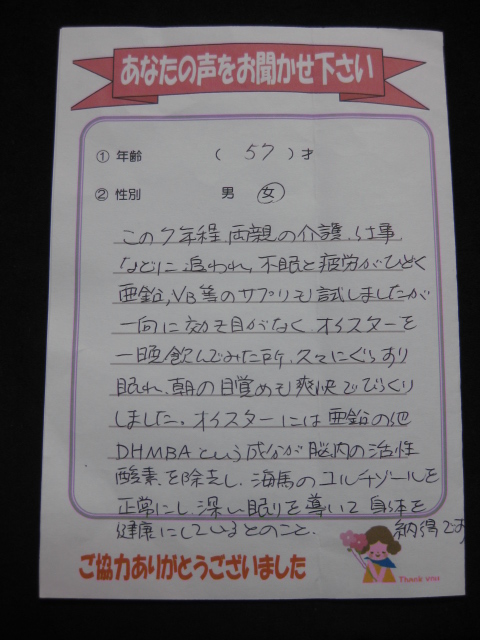 あなたの声をお聞かせ下さい
① 年齢 ( 57 ) 才
② 性別 男 女
この7年程、両親の介護、仕事
などに追われ、不眠と疲労がひどく
亜鉛、VB等のサプリも試しましたが
一向に効き目がなく、オイスターを
一晩飲んでみた所、久々にぐっすり
眠れ、朝の目覚めも爽快でびっくり
しました。オイスターには亜鉛の他
DHMBAという成分が脳内の活性
酸素を除去し、海馬のコルチゾールを
正常にし、深い眠りを導いて身体を
健康にしているとのこと、納得です
ご協力ありがとうございました
Thank you